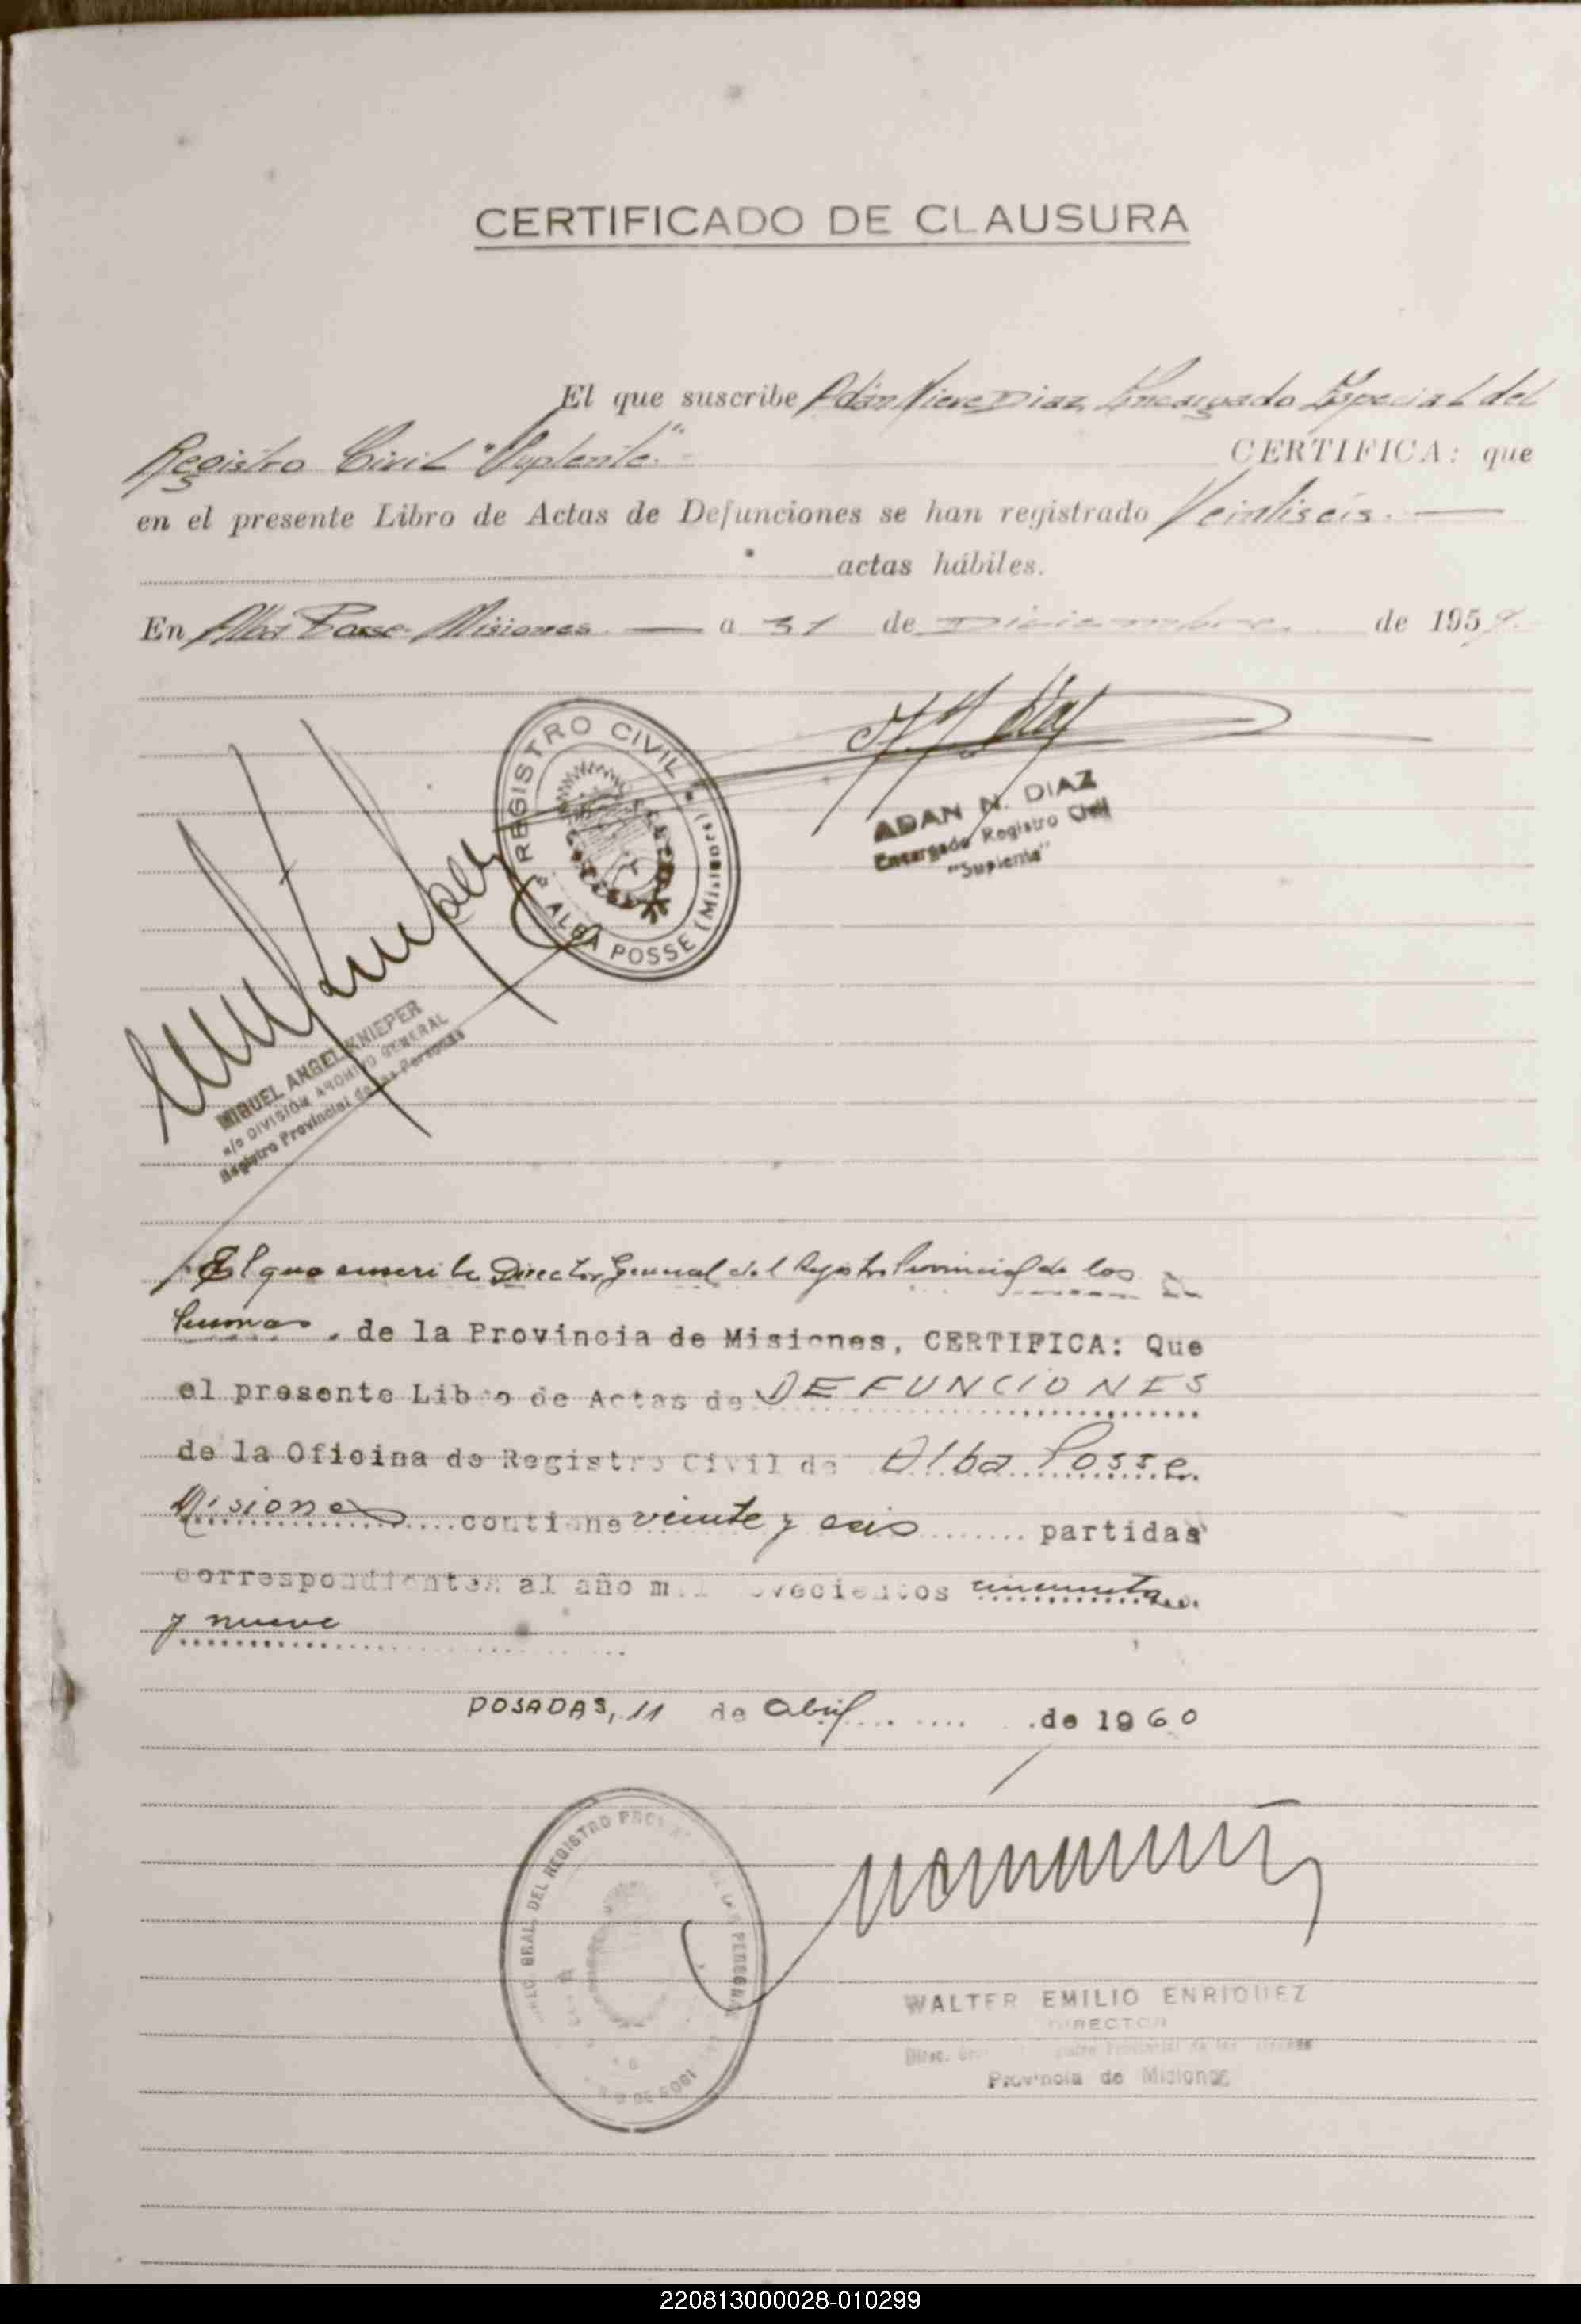 CERTIFICADO DE CLAUSURA
El que suscribe Adan Nieve Diaz Encargado Especial del
Registro Civil "Suplente." CERTIFICA: que
en el presente Libro de Actas de Defunciones se han registrado Veintiseis.
actas hábiles.
En Alba Posse Misiones. a 31 de Diciembre. de 1959.
REGISTRO CIVIL
ALBA POSSE (Misiones)
ADAN N. DIAZ
Encargado Registro Civil
"Suplente"
MIGUEL ANGEL KNIEPER
a/c DIVISIÓN ARCHIVO GENERAL
Registro Provincial de las Personas
El que suscribe Director General del Registro Provincial de las
Personas. de la Provincia de Misiones, CERTIFICA: Que
el presente Libro de Actas de DEFUNCIONES
de la Oficina de Registro Civil de Alba Posse
Misiones contiene veinte y seis partidas
correspondientes al año mil novecientos cincuenta
y nueve
POSADAS, 11 de Abril de 1960
GRAL. DEL REGISTRO
WALTER EMILIO ENRIQUEZ
DIRECTOR
Provincial de las
Provincia de Misiones
220813000028-010299